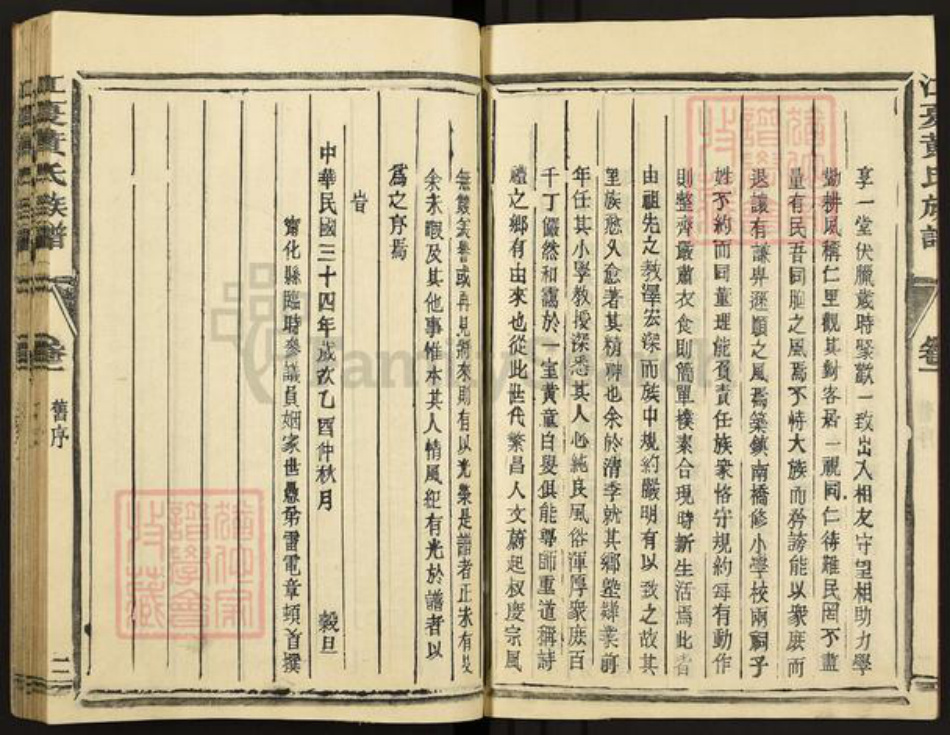 江夏黃氏族譜 卷一
享一堂伏臘歲時聚歡一致出入相友守望相助力學
勤耕風稱仁里觀其對客居一視同仁待難民罔不盡
量有民吾同胞之風焉不恃大族而矜誇能以衆庶而
退讓有謙卑遜順之風焉築鎮南橋修小學校兩祠子
姓不約而同董理能負責任族衆恪守規約每有動作
則整齊嚴肅衣食則簡單樸素合現時新生活焉此皆
由祖先之教澤宏深而族中規約嚴明有以致之故其
里族愈久愈著其精神也余於清季就其鄉塾肄業前
年任其小學教授深悉其人心純良風俗渾厚衆庶百
千丁儼然和靄於一室黃童白叟俱能尊師重道稱詩
禮之鄉有由來也從此世代繁昌人文蔚起叔慶宗風
無異矣譽或再見將來則有以光榮是譜者正未有艾
余未暇及其他事惟本其人情風紀有光於譜者以
爲之序焉
旹
中華民國三十四年歲次乙酉仲秋月 穀旦
甯化縣臨時參議員姻家世愚弟雷電章頓首撰
江夏黃氏族譜 卷一 舊序 二
譜學會
收藏
譜學會
收藏
FamilySearch